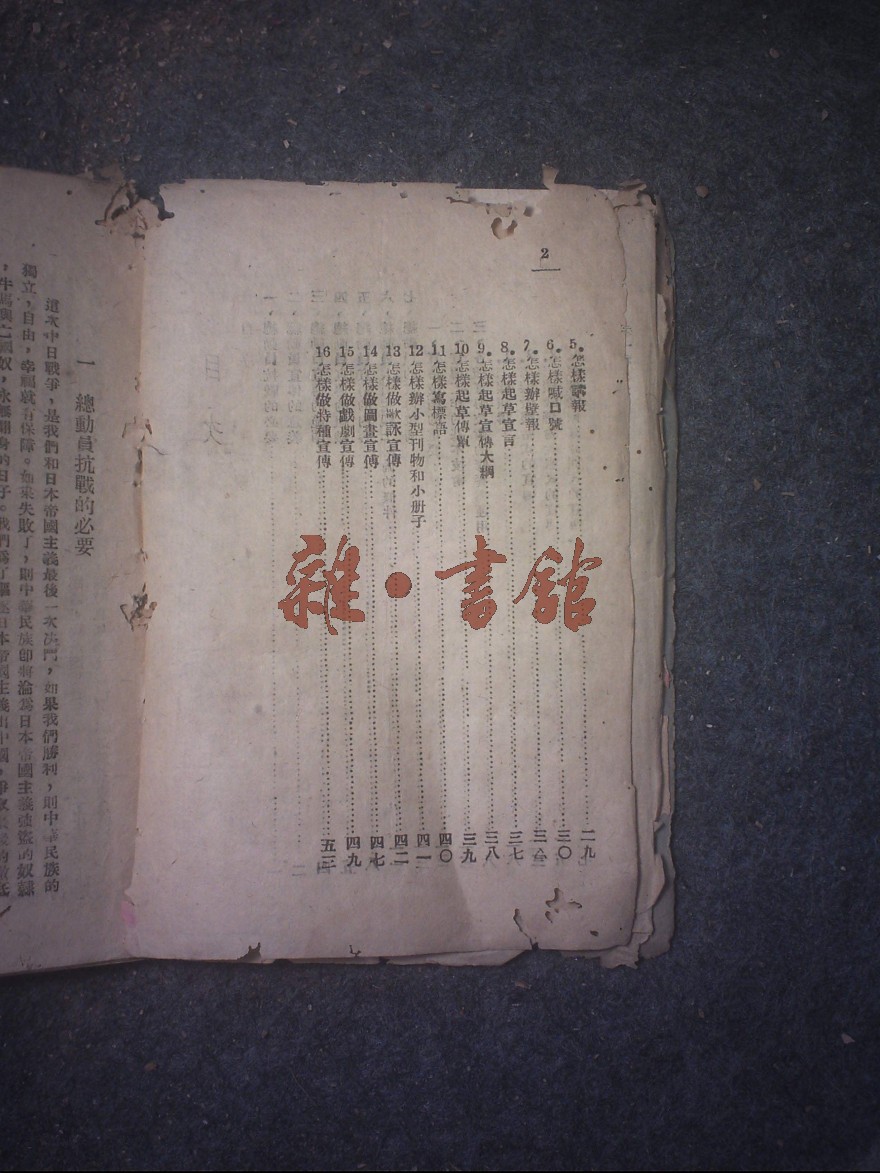 2
5. 怎樣讀報 二九
6. 怎樣喊口號 三〇
7. 怎樣辦壁報 三三
8. 怎樣起草宣言 三七
9. 怎樣起草宣傳大綱 三八
10 怎樣起草傳單 三九
11 怎樣寫標語 四〇
12 怎樣辦小型刊物和小册子 四一
13 怎樣做歌詠宣傳 四二
14 怎樣做圖畫宣傳 四七
15 怎樣做戲劇宣傳 四九
16 怎樣做特種宣傳 五三
雜·書館
一 總動員抗戰的必要
這次中日戰爭,是我們和日本帝國主義最後一次決鬥,如果我們勝利,則中華民族的
獨立,自由,幸福就有保障。如果失敗了,則中華民族卽將淪爲日本帝國主義強盜的奴隸